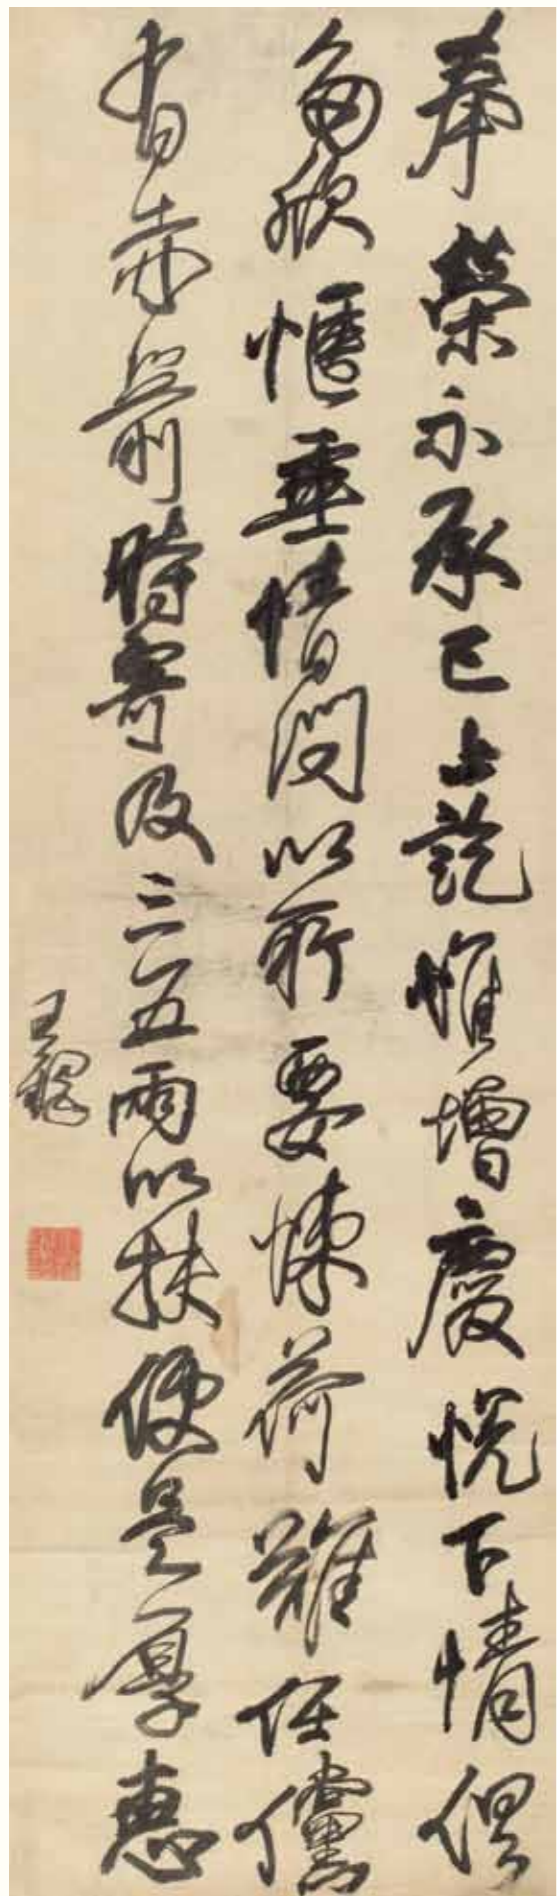 奉榮示承已上訖惟增慶悅下情但
多欣愜垂情問以所要悚荷難任儻
有赤箭時寄及三五兩以扶便是厚惠
王鐸